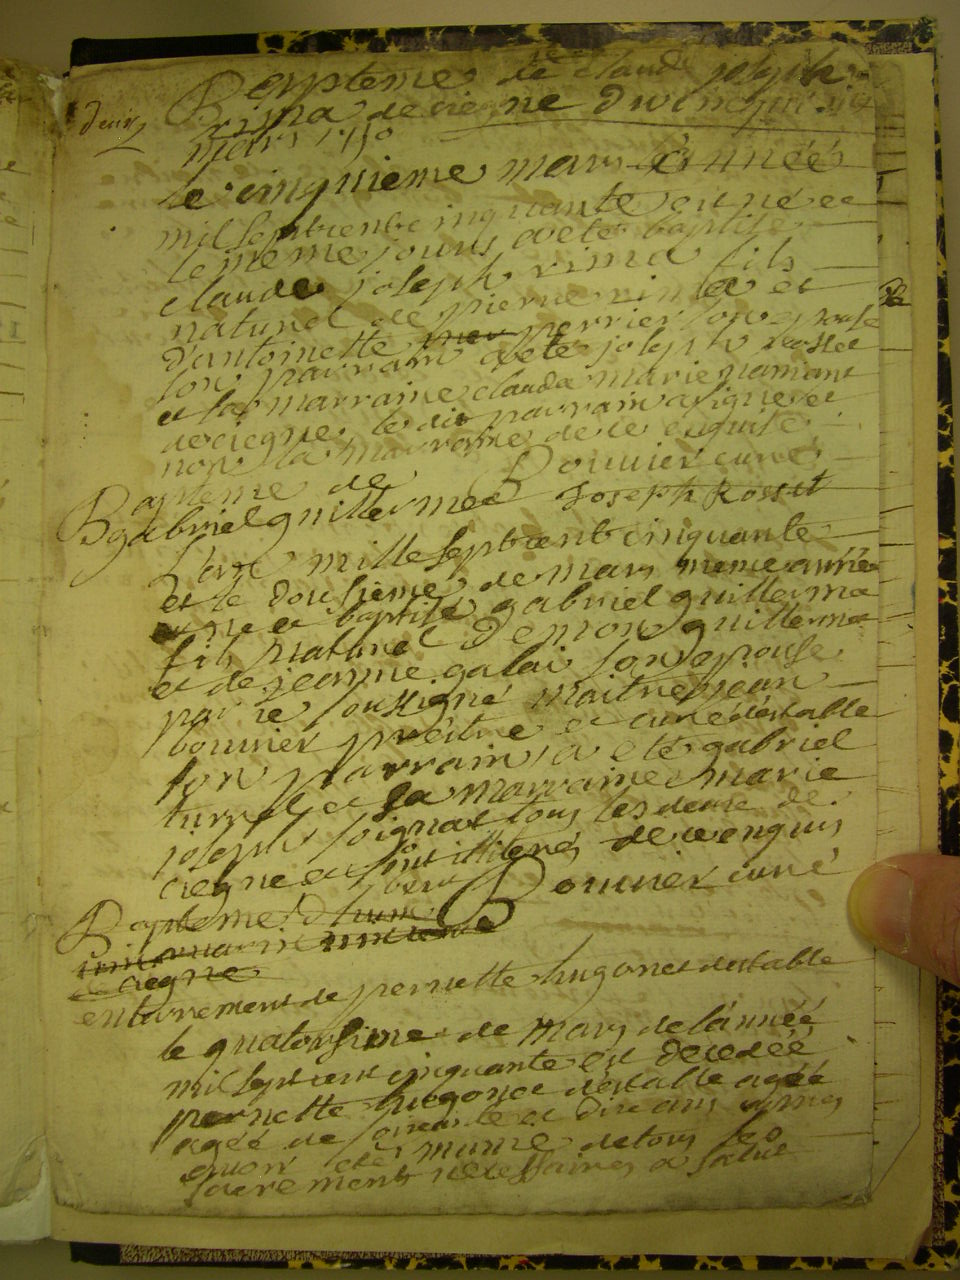 deux
Bapteme de claude joseph
Rima de ciegne du cinquieme
mars 1750
le cinquieme mars année
mil sept cent cinquante est né et
le meme jours a eté baptisé
claude joseph rima fils
naturel de pierre rima et
d'antoinette perrier son epouse
son parrain a eté joseph rosset
et la marraine clauda marie
de ciegne, le dit parrain a signe et
non la marraine de ce enquise
Bouvier curé
Bapteme de
gabriel guillermée Joseph Rosset
L'an mille sept cent cinquante
et le dousieme de mars meme année
est né et baptisé gabriel guillerma
fils naturel de guillerma
et de jeanne galai son epouse
par je soussigné maitre jean
bouvier prêtre et curé destable
son parrain a eté gabriel
turrel et la marraine marie
joseph soignat tous les deux de
ciegne et illiterés de ce enquis
Bouvier curé
Bapteme d'une
ciegne
enterrement de pernette hugonet destable
le quatorsieme de mars de l'année
mil sept cent cinquante est decedée
pernette hugonet destable agée
agée de soixante et dix ans apres
avoir eté munie de tous les
sacrements necessaires a salut